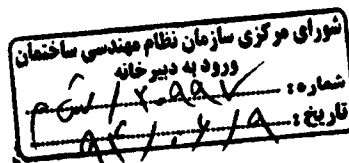 شورای مرکزی سازمان نظام مهندسی ساختمان
ورود به دبیرخانه
شماره: ۲۰۹۹۷ / ش م
تاریخ: ۹۴/۰۶/۰۹